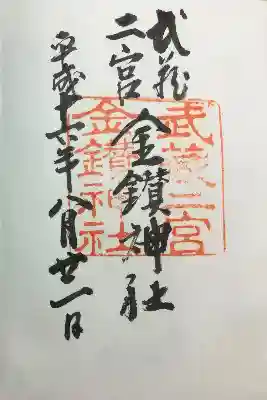 武蔵
二宮
金鑚神社
平成十六年八月廿一日
武蔵二宮
金鑚神社